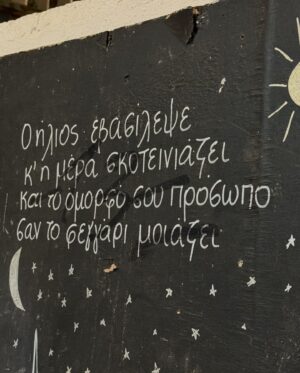 Ο ήλιος εβασίλεψε
κ' η μέρα σκοτεινιάζει
και το όμορφό σου πρόσωπο
σαν το φεγγάρι μοιάζει